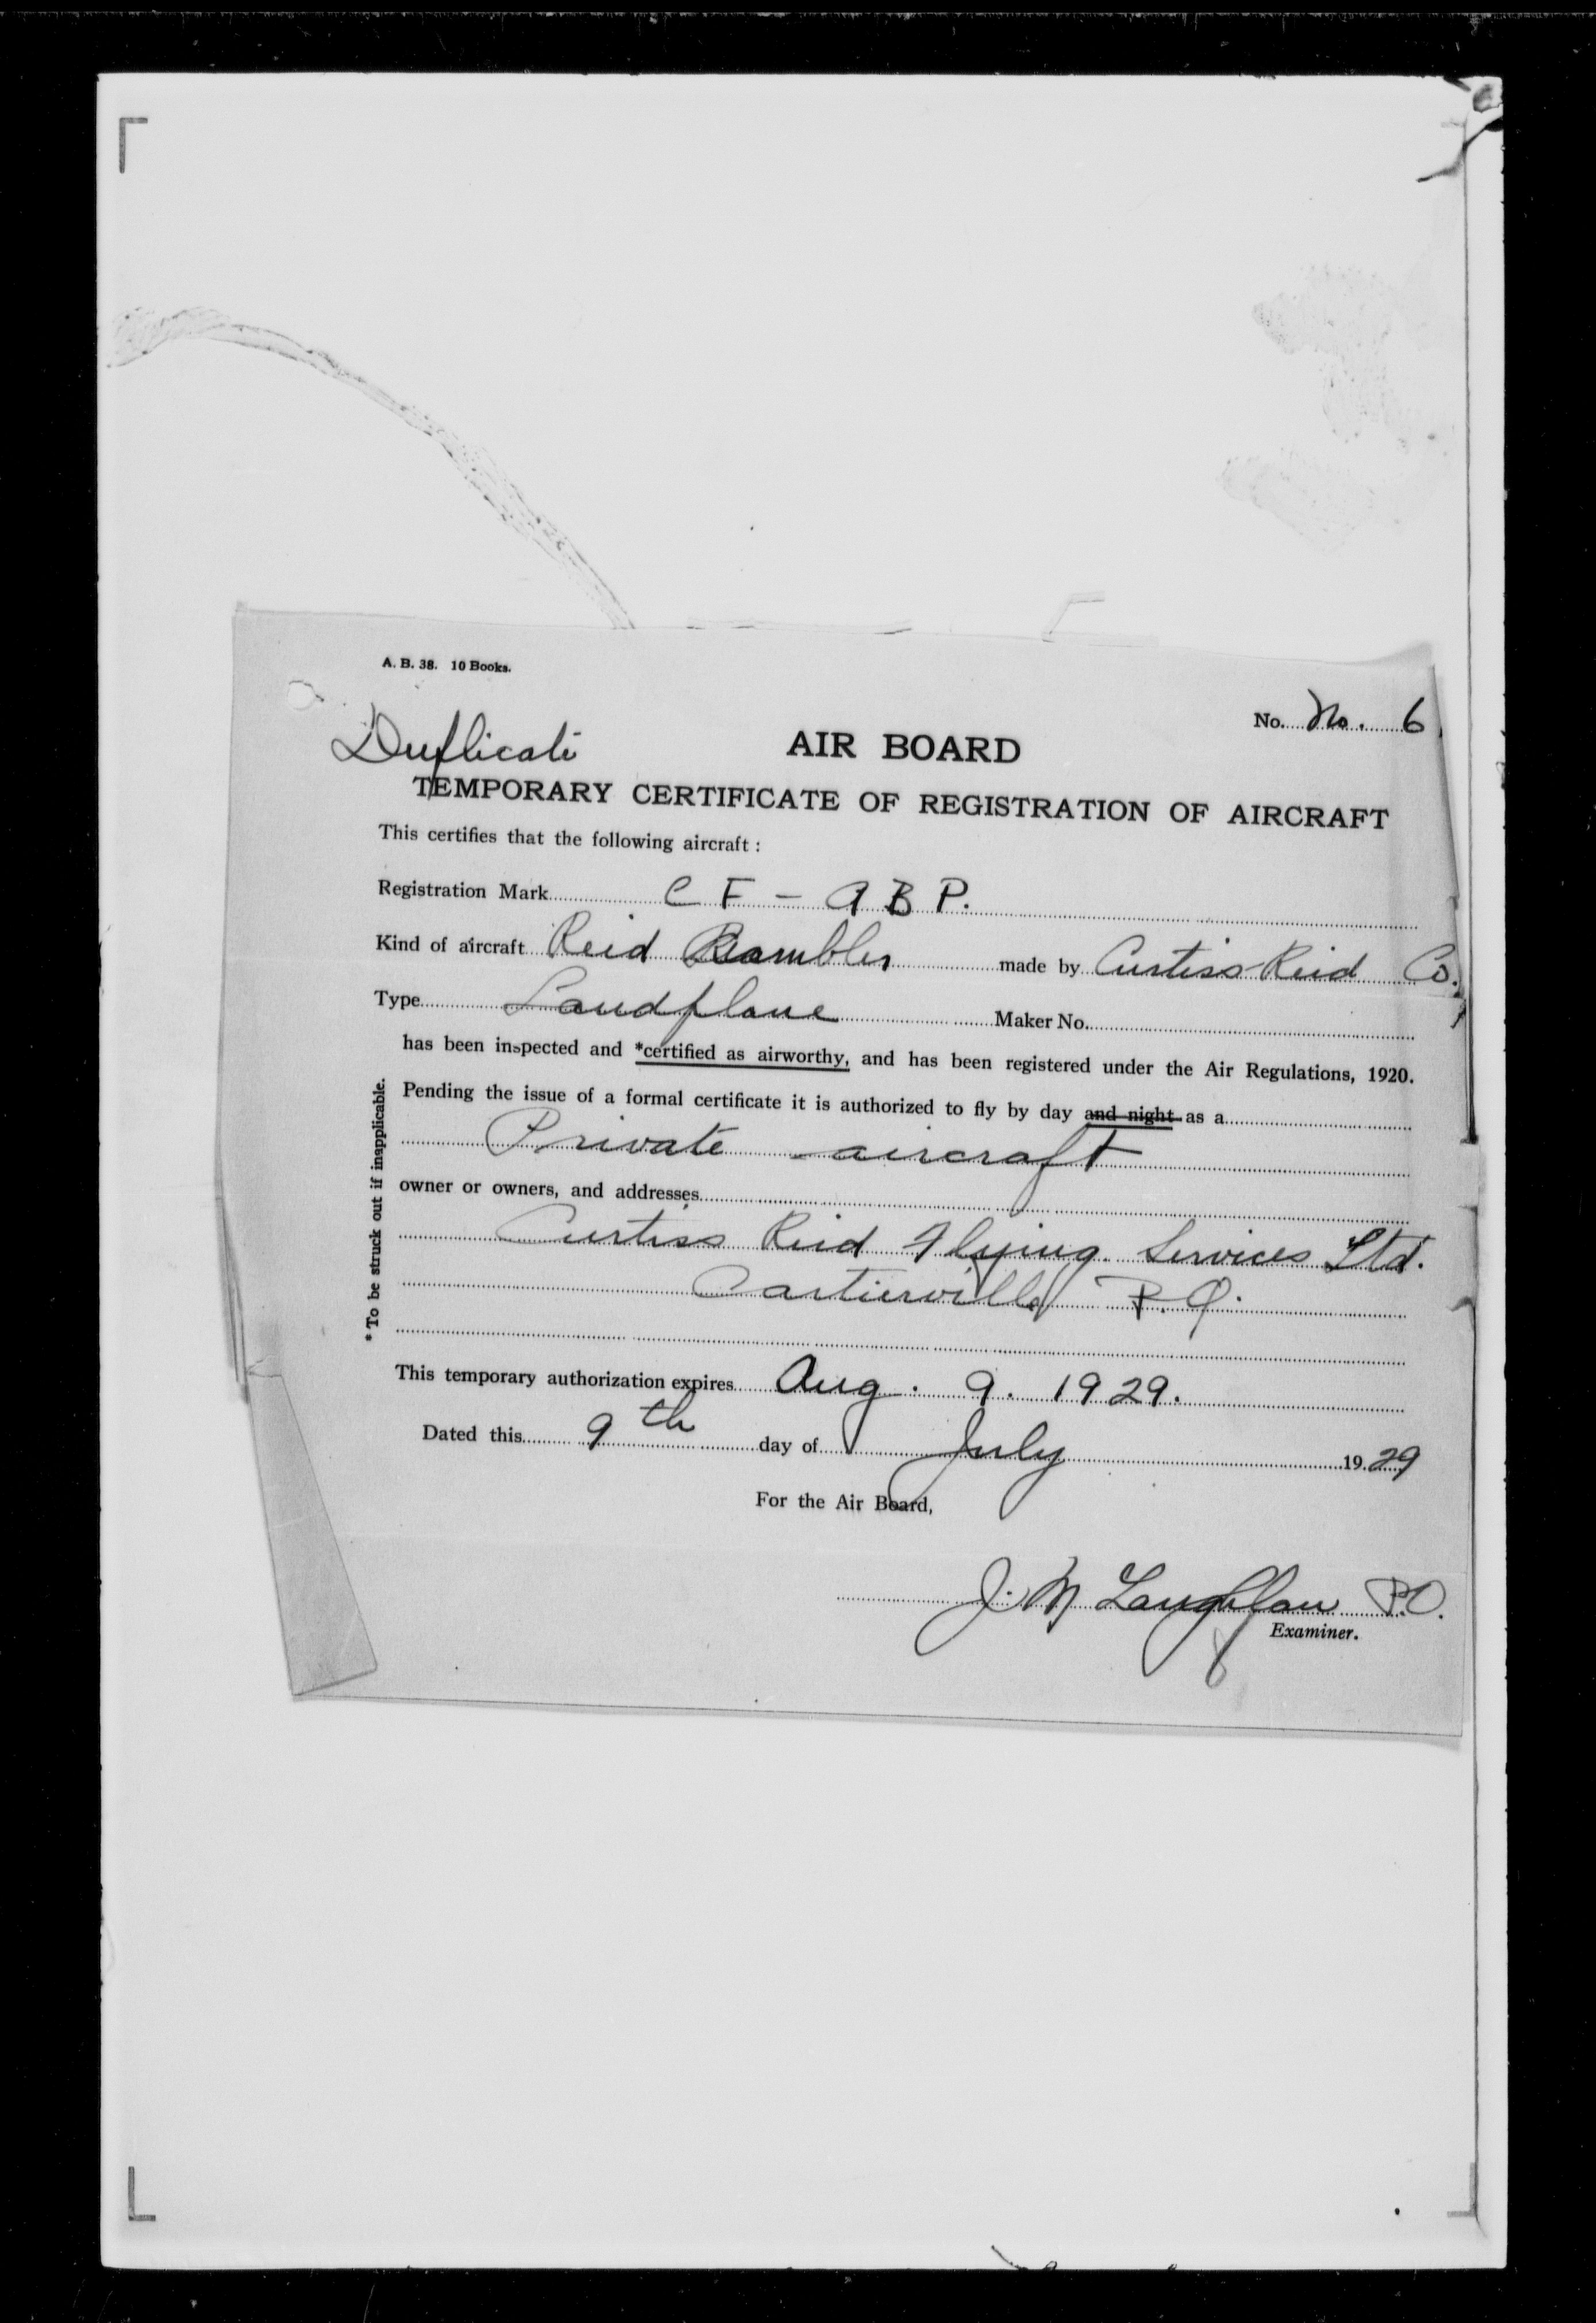 A. B. 38. 10 Books.
No. No. 6
Duplicate
AIR BOARD
TEMPORARY CERTIFICATE OF REGISTRATION OF AIRCRAFT
This certifies that the following aircraft :
Registration Mark C F - A B P.
Kind of aircraft Reid Rambler made by Curtiss-Reid Co.
Type Landplane Maker No.
has been inspected and *certified as airworthy, and has been registered under the Air Regulations, 1920.
Pending the issue of a formal certificate it is authorized to fly by day and night as a
Private aircraft
owner or owners, and addresses
Curtiss Reid Flying Services Ltd.
Cartierville P.Q.
* To be struck out if inapplicable.
This temporary authorization expires Aug. 9. 1929.
Dated this 9th day of July 1929
For the Air Board,
J. M Laughlan P.O.
Examiner.